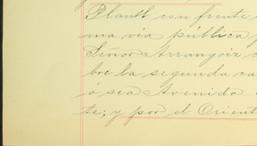 Plantl con frente
ma via pública
Señor a Arrangoiz
bre la segunda
ó sea Avenida
te; y por el Orient